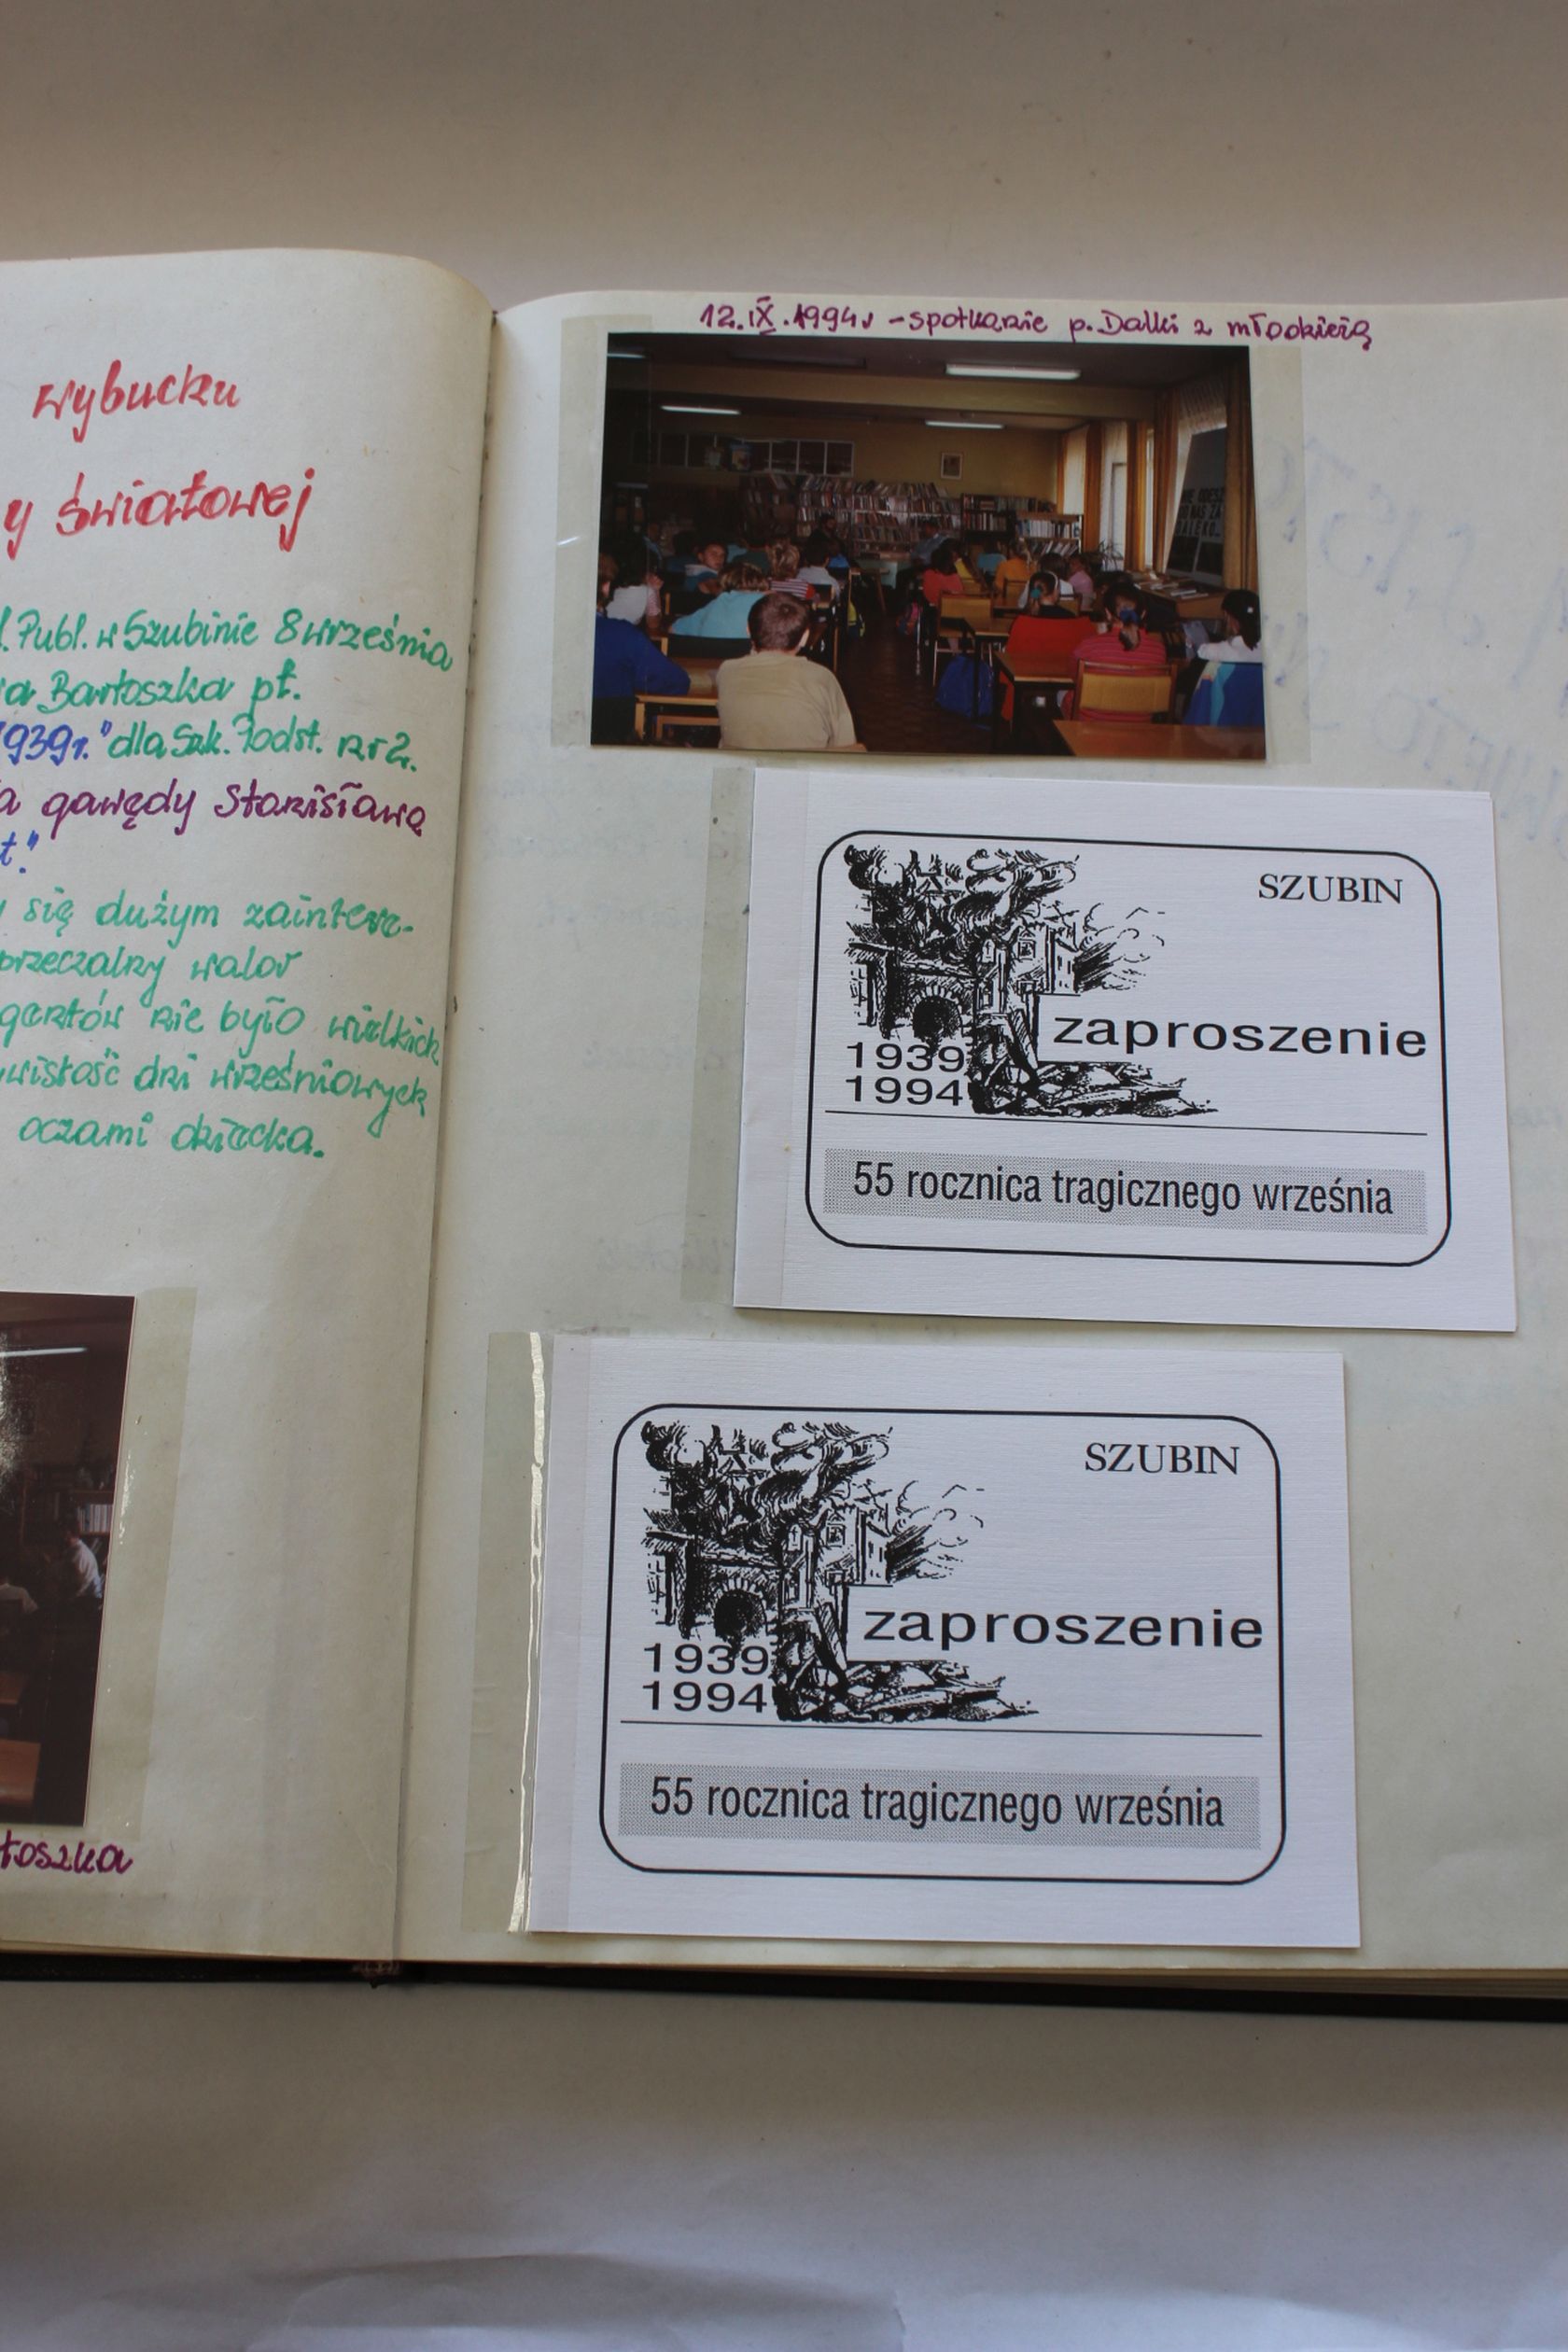 wybuchu
y światowej
l. Publ. w Szubinie 8 września
a Bartoszka pt.
1939r." dla Szk. Podst. nr 2.
a gawędy Stanisława
t."
się dużym zaintere-
przeczalny walor
gentów nie było wielkich
wistość dni wrześniowych
oczami dziecka.
toszka
12.IX.1994r - spotkanie p. Dalki z młodzieżą
SZUBIN
zaproszenie
1939
1994
55 rocznica tragicznego września
SZUBIN
zaproszenie
1939
1994
55 rocznica tragicznego września